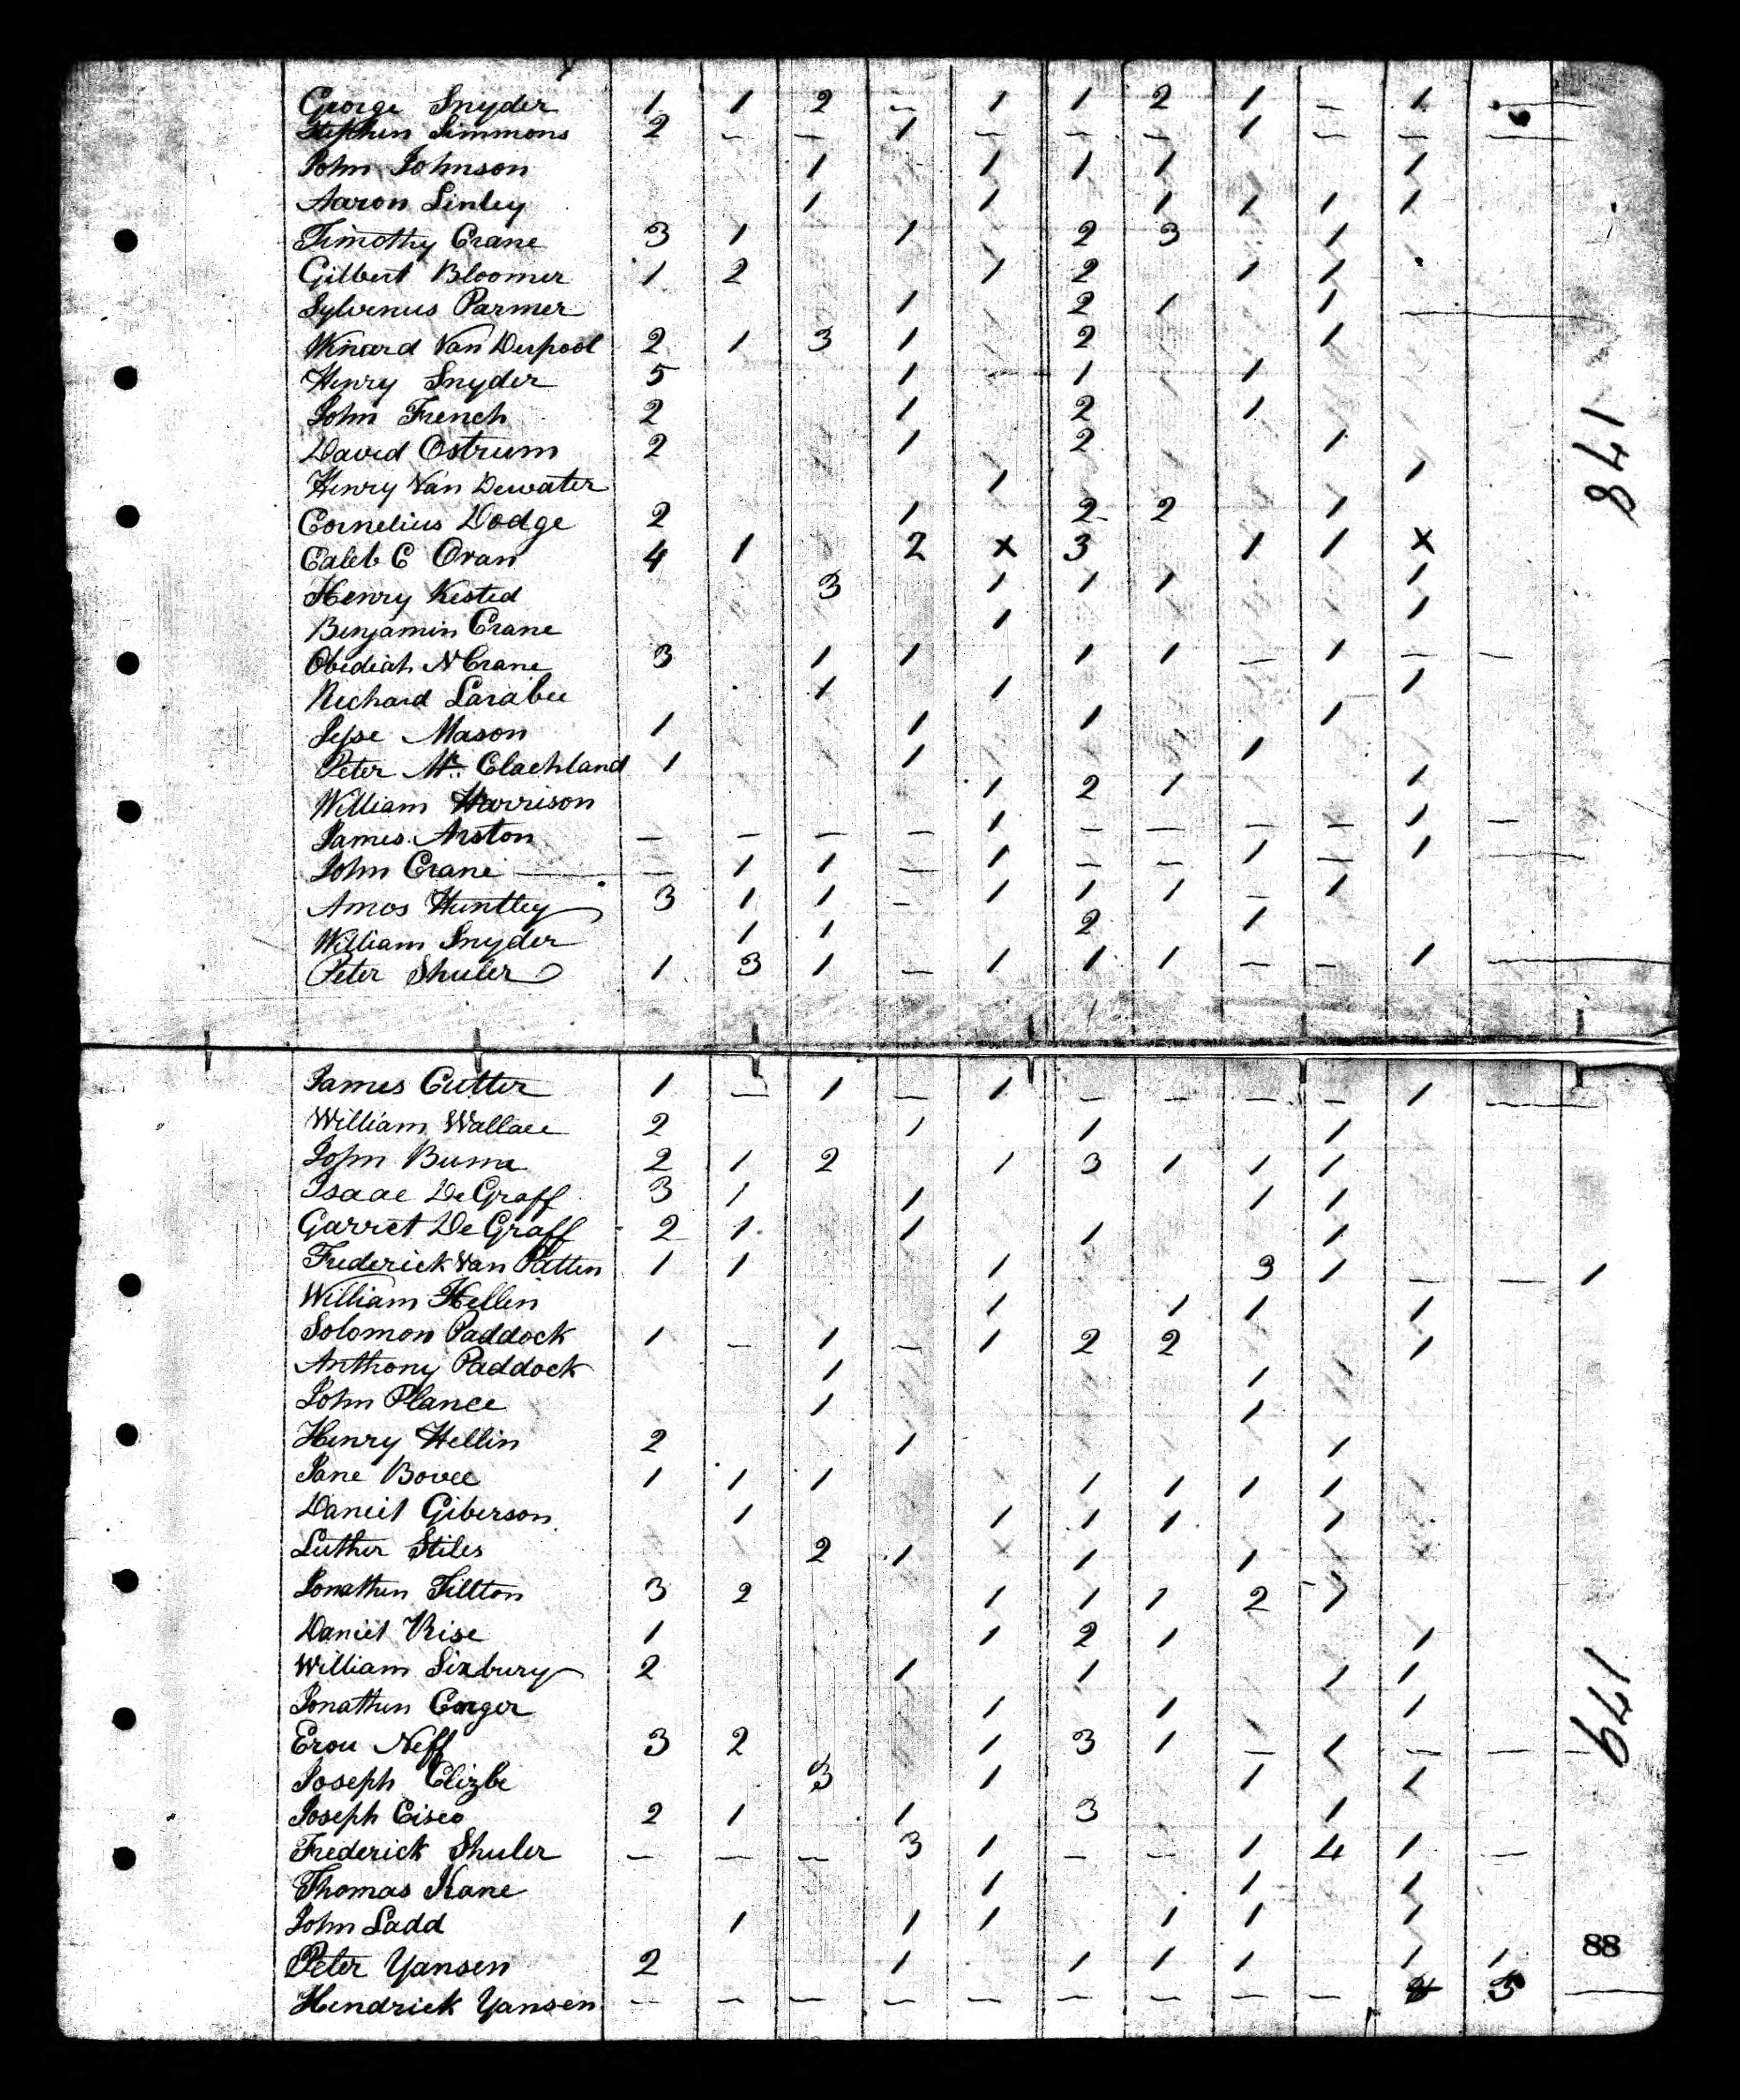 George Snyder 1 1 2 – 1 1 2 1 – 1
Stephen Simmons 2 – – 1 – – – 1 – –
John Johnson 1 1 1 1 1
Aaron Linley 1 1 1 1 1 1
Timothy Crane 3 1 1 2 3 1
Gilbert Bloomer 1 2 1 2 1 1
Sylvenus Parmer 1 2 1 1
Winard Van Derpool 2 1 3 1 2 1
Henry Snyder 5 1 1 1
John French 2 1 2 1
David Ostrum 2 1 2 1
Henry Van Dewater 1 1
Cornelius Dodge 2 1 2 2 1
Caleb C Oran 4 1 2 x 3 1 1 x
Henry Kested 3 1 1 1 1
Benjamin Crane 1 1
Obediah N Crane 3 1 1 1 1 – 1 – –
Richard Larabee 1 1 1
Jesse Mason 1 1 1 1
Peter Mc. Clachland 1 1 1
William Harrison 1 2 1 1
James Arston – – – – 1 – – – – 1 –
John Crane – 1 1 – 1 – – 1 – 1
Amos Huntley 3 1 1 – 1 1 1 – 1
William Snyder 1 1 2 1
Peter Shuler 1 3 1 – 1 1 1 – – 1
178
James Cutter 1 – 1 – 1 – – – – 1
William Wallace 2 1 1 1
John Buma 2 1 2 1 3 1 1 1
Isaac De Graff 3 1 1 1 1
Garret De Graff 2 1 1 1 1
Frederick Van Patten 1 1 1 3 1 – – 1
William Hellin 1 1 1 1
Solomon Paddock 1 – 1 – 1 2 2 1
Anthony Paddock 1 1
John Plance 1 1
Henry Hellin 2 1 1
Jane Bovee 1 1 1 1 1 1 1
Daniel Giberson 1 1 1 1 1
Luther Stiles 2 1 1 1
Jonathen Tillton 3 2 1 1 1 2 1
Daniel Rise 1 1 2 1 1
William Sixbury 2 1 1 1 1
Jonathen Conger 1 1 1
Erou Neff 3 2 1 3 1 – 1 – – –
Joseph Clizbe 3 1 1 1
Joseph Cisco 2 1 1 3 1
Frederick Shuler – – – 3 1 – – 1 4 1 –
Thomas Kane 1 1 1
John Ladd 1 1 1 1 1 1
Peter Yansen 2 1 1 1 1 1 1
Hendrick Yansen – – – – – – – – – 5
179
88